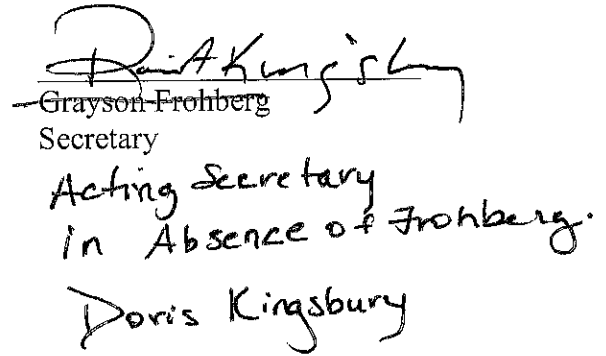 Doris A Kingsbury
Grayson Frohberg
Secretary
Acting Secretary
in Absence of Frohberg.
Doris Kingsbury